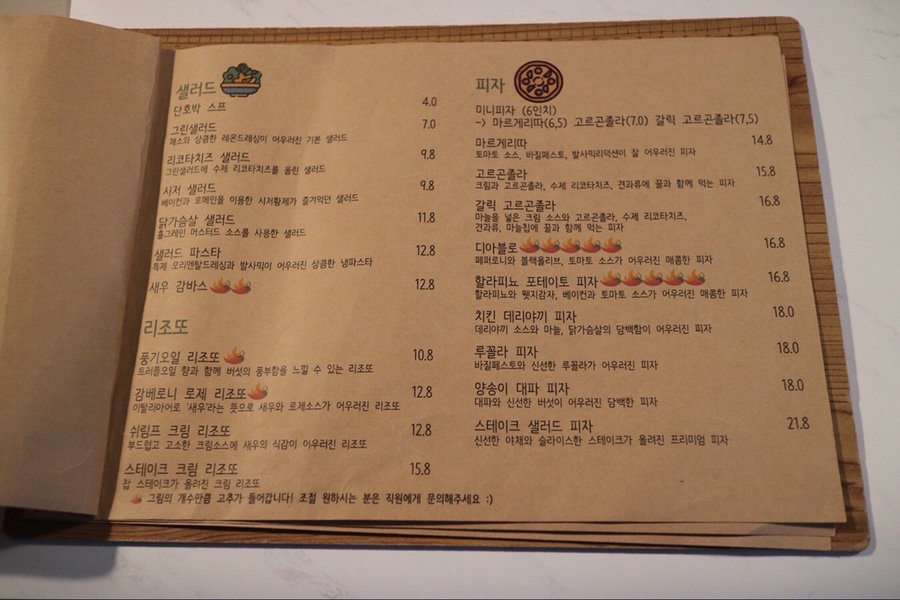 샐러드
단호박 스프 4.0
그린샐러드 7.0
채소와 상큼한 레몬드레싱이 어우러진 기본 샐러드
리코타치즈 샐러드 9.8
그린샐러드에 수제 리코타치즈를 올린 샐러드
시저 샐러드 9.8
베이컨과 로메인을 이용한 시저황제가 즐겨먹던 샐러드
닭가슴살 샐러드 11.8
홀그레인 머스터드 소스를 사용한 샐러드
샐러드 파스타 12.8
특제 오리엔탈드레싱과 발사믹이 어우러진 상큼한 냉파스타
새우 감바스 12.8
리조또
풍기오일 리조또 10.8
트러플오일 향과 함께 버섯의 풍부함을 느낄 수 있는 리조또
감베로니 로제 리조또 12.8
이탈리아어로 '새우'라는 뜻으로 새우와 로제소스가 어우러진 리조또
쉬림프 크림 리조또 12.8
부드럽고 고소한 크림소스에 새우의 식감이 어우러진 리조또
스테이크 크림 리조또 15.8
찹 스테이크가 올려진 크림 리조또
그림의 개수만큼 고추가 들어갑니다! 조절 원하시는 분은 직원에게 문의해주세요 :)
피자
미니피자 (6인치)
~> 마르게리따(6,5) 고르곤졸라(7.0) 갈릭 고르곤졸라(7,5)
마르게리따 14.8
토마토 소스, 바질페스토, 발사믹리덕션이 잘 어우러진 피자
고르곤졸라 15.8
크림과 고르곤졸라, 수제 리코타치즈, 견과류에 꿀과 함께 먹는 피자
갈릭 고르곤졸라 16.8
마늘을 넣은 크림 소스와 고르곤졸라, 수제 리코타치즈,
견과류, 마늘칩에 꿀과 함께 먹는 피자
디아블로 16.8
페퍼로니와 블랙올리브, 토마토 소스가 어우러진 매콤한 피자
할라피뇨 포테이토 피자 16.8
할라피뇨와 웻지감자, 베이컨과 토마토 소스가 어우러진 매콤한 피자
치킨 데리야끼 피자 18.0
데리야끼 소스와 마늘, 닭가슴살의 담백함이 어우러진 피자
루꼴라 피자 18.0
바질페스토와 신선한 루꼴라가 어우러진 피자
양송이 대파 피자 18.0
대파와 신선한 버섯이 어우러진 담백한 피자
스테이크 샐러드 피자 21.8
신선한 야채와 슬라이스한 스테이크가 올려진 프리미엄 피자